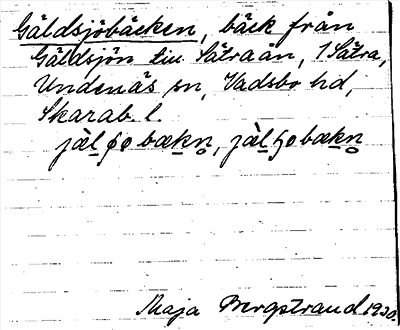 Gäldsjöbäcken, bäck från
Gäldsjön till Sätraån, 1 Sätra,
Undenäs sn, Vadsbo hd,
Skarab. l.
jàl̲ɕo bæk̲n̥, jàl̲ɧo bæk̲n̥
Maja Bergstrand 1930.